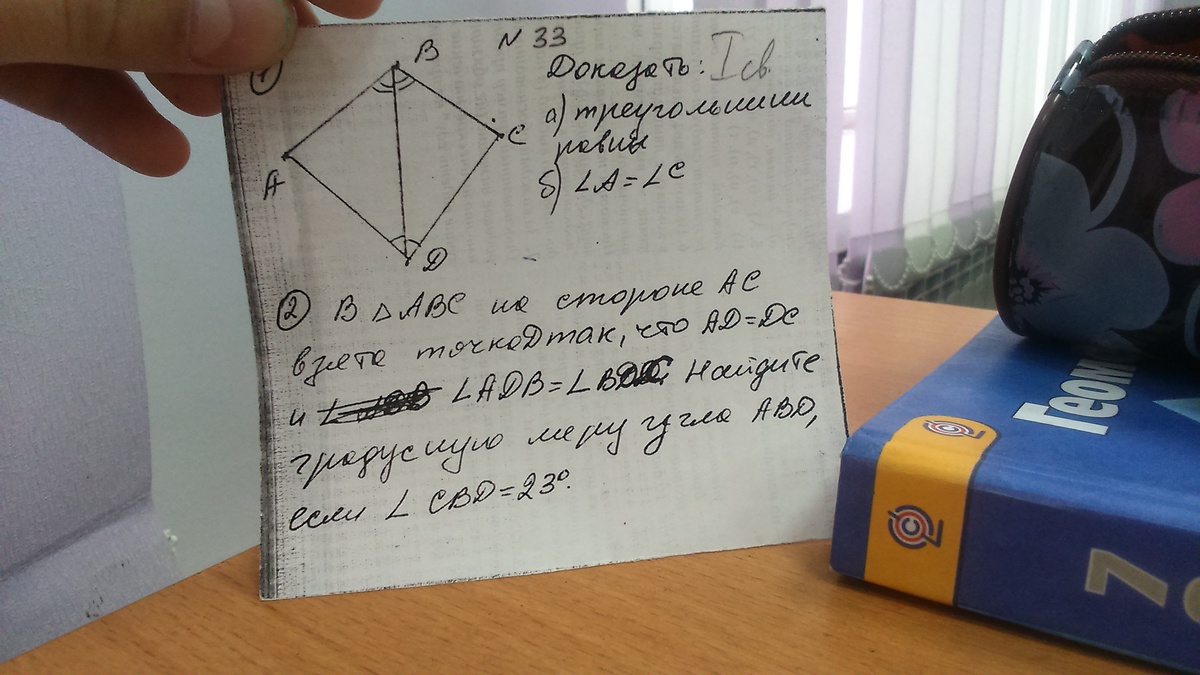 1)
N 33
B
A
C
D
Доказать: I св.
а) треугольники
равны
б) ∠A = ∠C
2 В △ABC на стороне AC
взята точка D так, что AD = DC
и ∠ADB = ∠BDC. Найдите
градусную меру угла ABD,
если ∠ CBD = 23°.
Геом
7